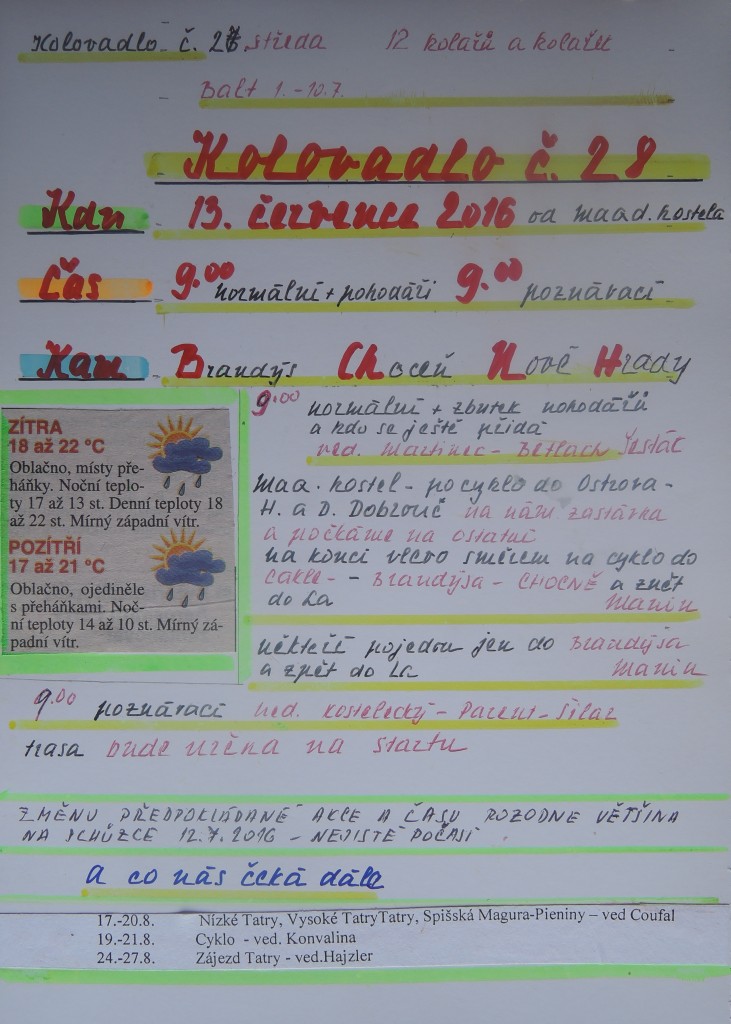 Kolovadlo č. 27, středa 12 kolařů a kolařek
Balt 1.-10.7.
Kolovadlo č. 28
Kdy 13. července 2016 od Maad. kostela
Čas 9.00 normální + pohodáři 9.00 poznávací
Kam Brandýs CHoceň Nové Hrady
9.00 normální + zbytek pohodářů
a kdo se ještě přidá
ved. Martinec - Betlach Šesták
Maa. kostel - po cyklo do Ostrova -
H. a D. Dobrouč na naši zastávka
a počkáme na ostatní
na konci vlevo směrem na cyklo do
Cakle - - Brandýsa - CHOCNĚ a zpět
do La Manin
někteří pojedou jen do Brandýsa
a zpět do La Manin
9.00 poznávací ved. Kostelecký - Parent - Šilar
trasa bude určena na startu
ZÍTRA
18 až 22 °C
Oblačno, místy pře-
háňky. Noční teplo-
ty 17 až 13 st. Denní teploty 18
až 22 st. Mírný západní vítr.
POZÍTŘÍ
17 až 21 °C
Oblačno, ojediněle
s přeháňkami. Noč-
ní teploty 14 až 10 st. Mírný zá-
padní vítr.
ZMĚNU PŘEDPOKLÁDANÉ AKCE A ČASU ROZODNE VĚTŠINA
NA SCHŮZCE 12.7.2016 - NEJISTÉ POČASÍ
a co nás čeká dále
17.-20.8. Nízké Tatry, Vysoké TatryTatry, Spišská Magura-Pieniny – ved Coufal
19.-21.8. Cyklo - ved. Konvalina
24.-27.8. Zájezd Tatry - ved.Hajzler